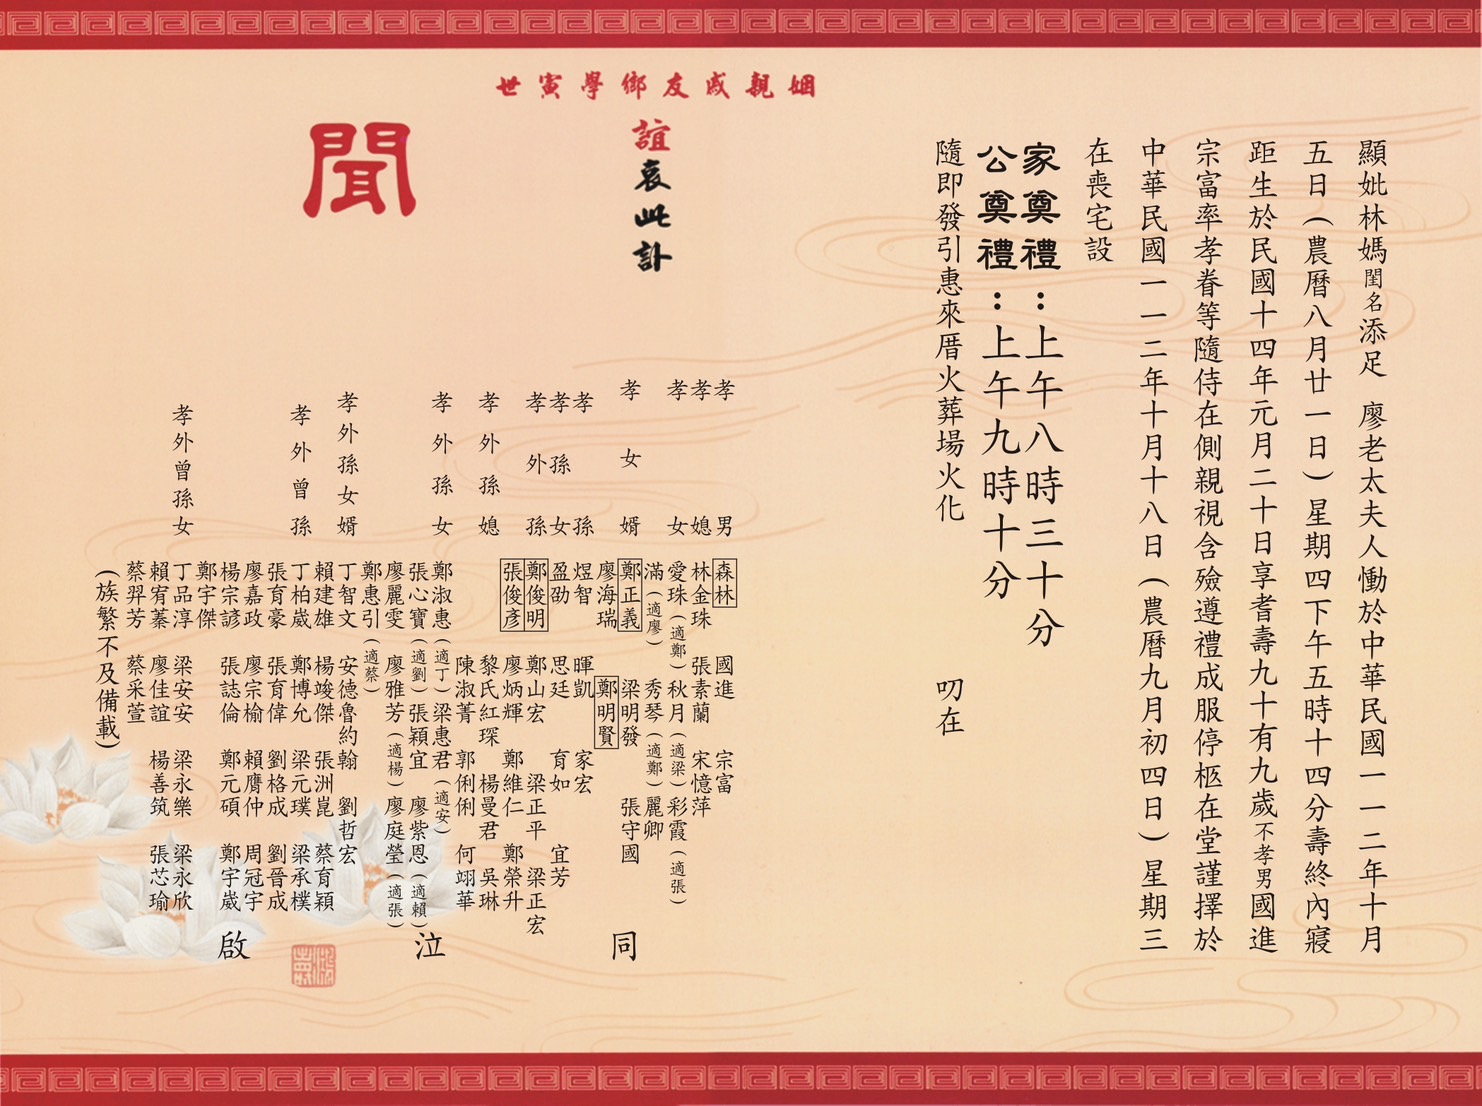 顯妣林媽閨名添足 廖老太夫人慟於中華民國一一二年十月
五日(農曆八月廿一日)星期四下午五時十四分壽終內寢
距生於民國十四年元月二十日享耆壽九十有九歲不孝男國進
宗富率孝眷等隨侍在側親視含殮遵禮成服停柩在堂謹擇於
中華民國一一二年十月十八日(農曆九月初四日)星期三
在喪宅設
家奠禮:上午八時三十分
公奠禮:上午九時十分
隨即發引惠來厝火葬場火化 叨在
姻親戚友鄉學寅世
誼哀此訃
聞
孝男 森林 國進 宗富
孝媳 林金珠 張素蘭 宋憶萍
孝女 愛珠(適鄭)秋月(適梁)彩霞(適張)
滿(適廖) 秀琴(適鄭)麗卿
孝女婿 鄭正義 梁明發 張守國
廖海瑞 鄭明賢
孝孫 煜智 暉凱 家宏
孝孫女 盈劭 思廷 育如 宜芳
孝外孫 鄭俊明 鄭山宏 梁正平 梁正宏
張俊彥 廖炳輝 鄭維仁 鄭榮升
孝外孫媳 黎氏紅琛 楊曼君 吳琳
陳淑菁 郭俐俐 何翊華
孝外孫女 鄭淑惠(適丁)梁惠君(適安)
張心寶(適劉)張穎宜 廖紫恩(適賴)
廖麗雯 廖雅芳(適楊)廖庭瑩(適張)
鄭惠引(適蔡)
孝外孫女婿 丁智文 安德魯約翰 劉哲宏
賴建雄 楊竣傑 張洲崑 蔡育穎
孝外曾孫 丁柏崴 鄭博允 梁元璞 梁承樸
張育豪 張育偉 劉格成 劉晉成
廖嘉政 廖宗榆 賴膺仲 周冠宇
楊宗諺 張誌倫 鄭元碩 鄭宇崴
鄭宇傑
孝外曾孫女 丁品淳 梁安安 梁永樂 梁永欣
賴宥蓁 廖佳誼 楊善筑 張芯瑜
蔡羿芳 蔡采萱
(族繁不及備載)
同 泣 啟